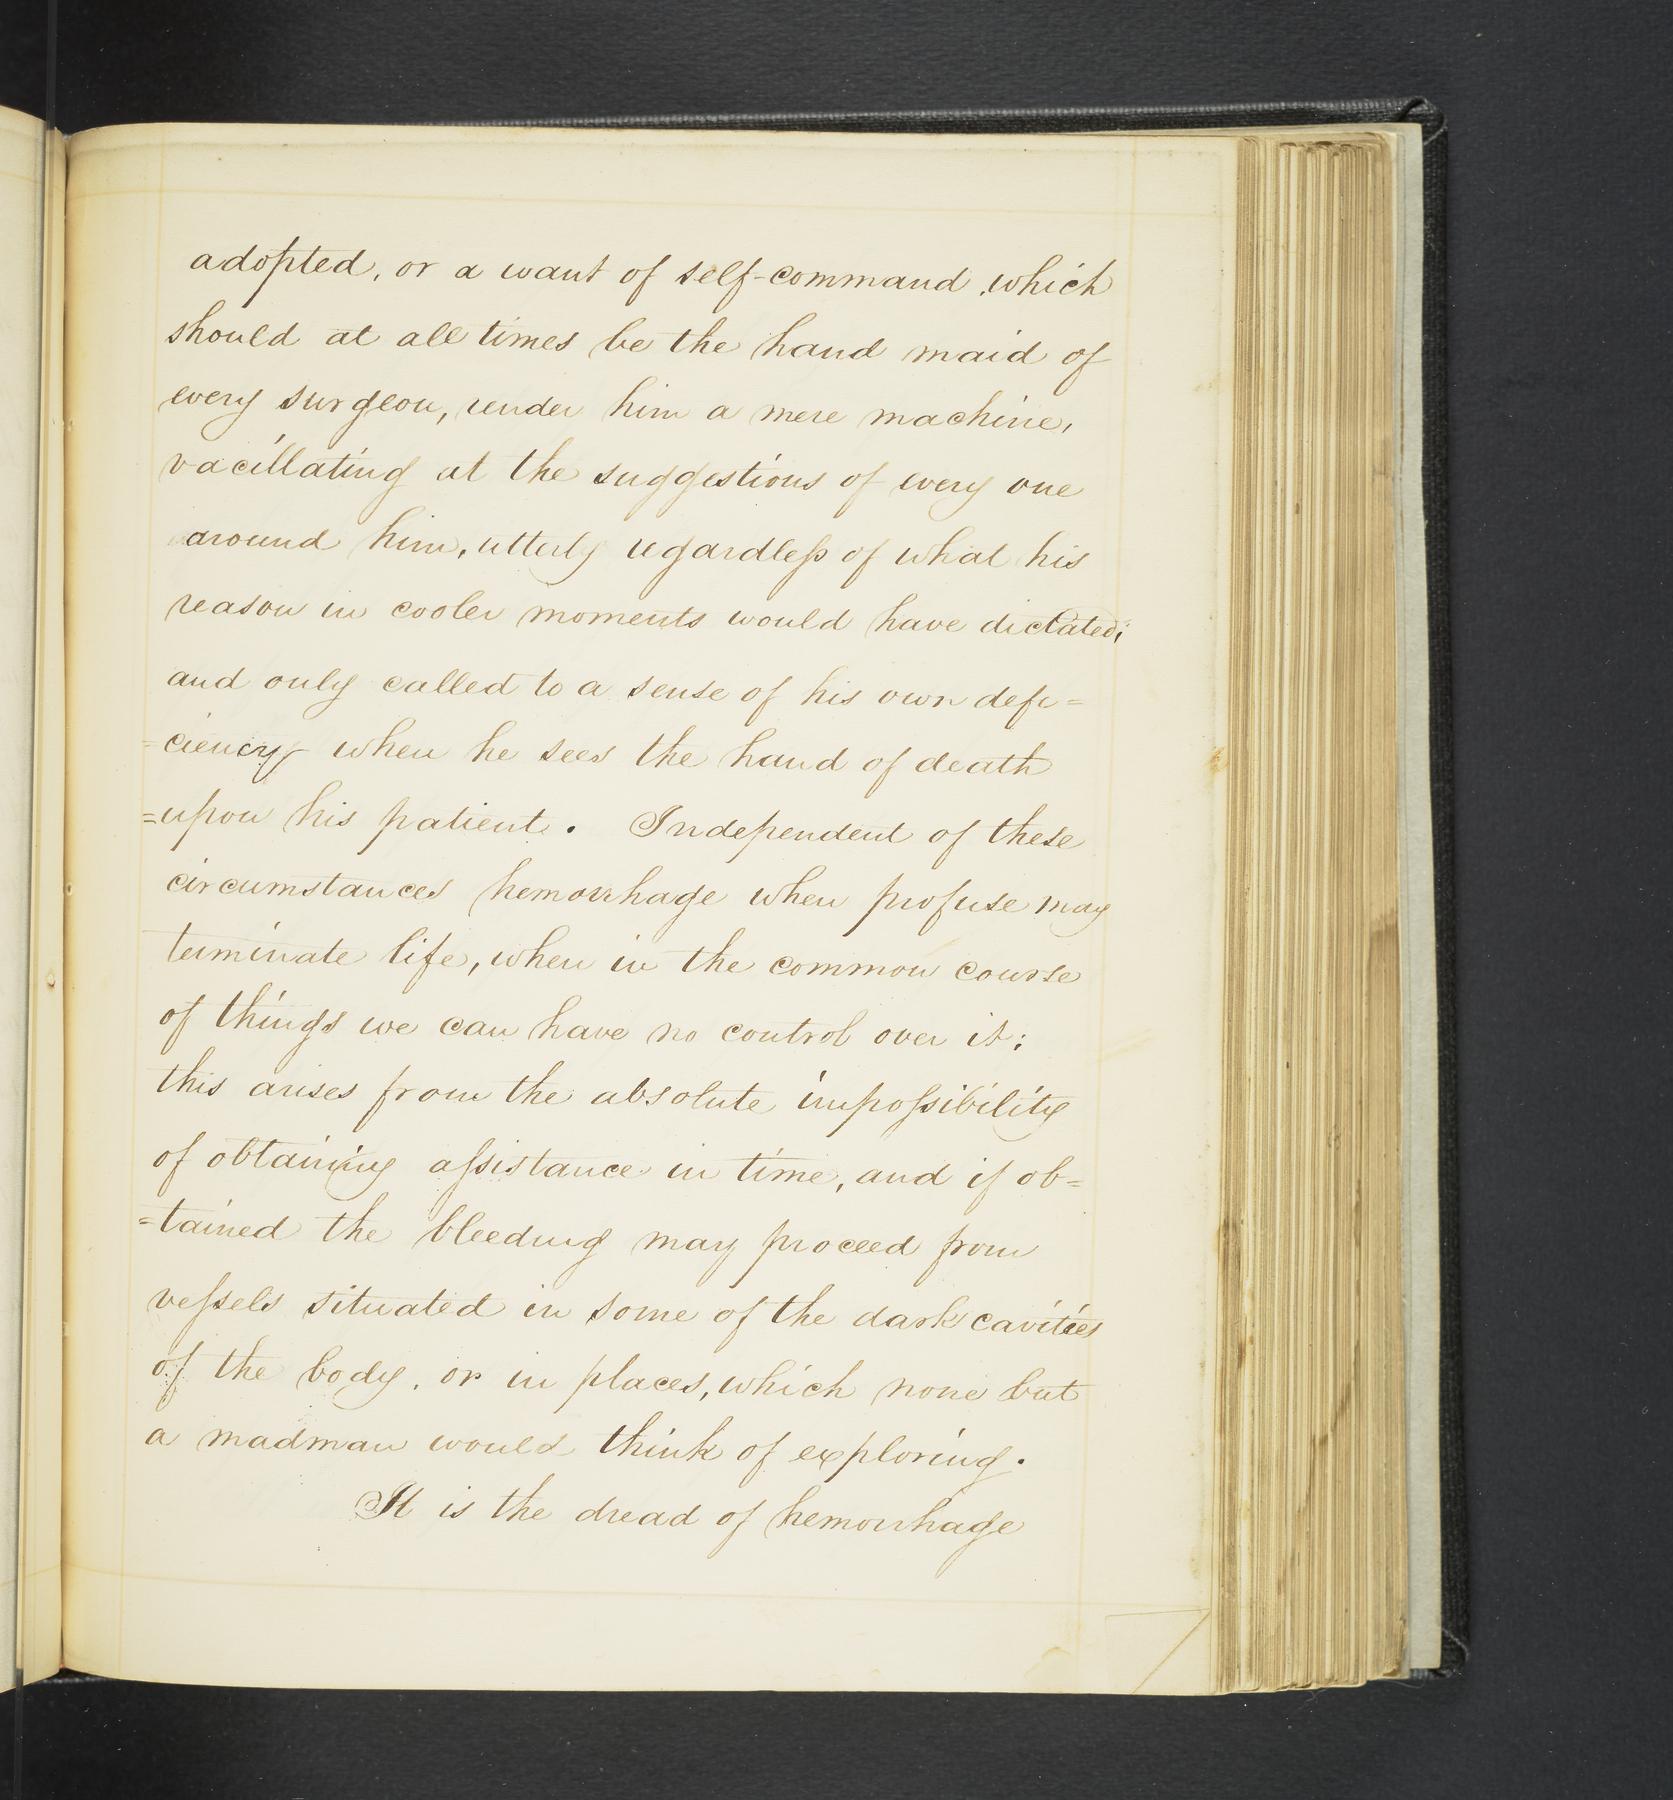 adopted, or a want of self-command, which
should at all times be the hand maid of
every surgeon, render him a mere machine,
vacillating at the suggestions of every one
around him, utterly regardless of what his
reason in cooler moments would have dictated;
and only called to a sense of his own defi=
=ciency when he sees the hand of death
=upon his patient. Independent of these
circumstances hemorrhage when profuse may
terminate life, when in the common course
of things we can have no control over it;
this arises from the absolute impossibility
of obtaining assistance in time, and if ob=
=tained the bleeding may proceed from
vessels situated in some of the dark cavities
of the body, or in places, which none but
a madman would think of exploring.
It is the dread of hemorrhage